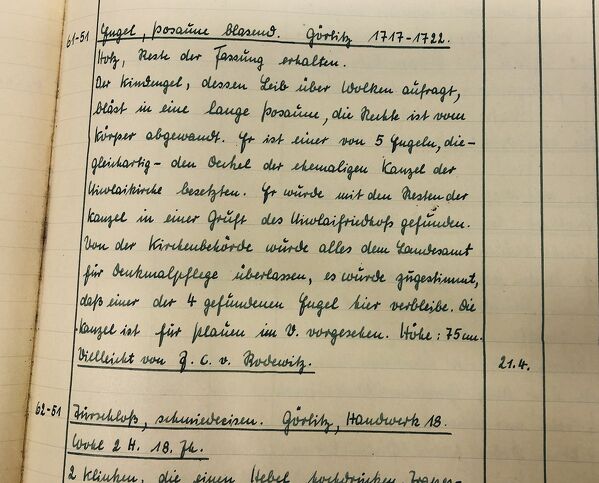 61-51 Engel, Posaune blasend. Görlitz 1717-1722.
Holz, Reste der Fassung erhalten.
Der Kindengel, dessen Leib über Wolken aufragt,
bläst in eine lange Posaune, die Rechte ist vom
Körper abgewandt. Er ist einer von 5 Engeln, die -
gleichartig - den Deckel der ehemaligen Kanzel der
Nikolaikirche besetzten. Er wurde mit den Resten der
Kanzel in einer Gruft des Nikolaifriedhofs gefunden.
Von der Kirchenbehörde wurde alles dem Landesamt
für Denkmalpflege überlassen, es wurde zugestimmt,
daß einer der 4 gefundenen Engel hier verbleibe. Die
Kanzel ist für Plauen im V. vorgesehen. Höhe: 75 cm.
Vielleicht von J. C. v. Rodewitz. 21.4.
62-51 Türschloß, schmiedeeisen. Görlitz, Handwerk 18.
Wohl 2 H. 18. Jh.
2 Klinken, die einen Hebel hochdrücken